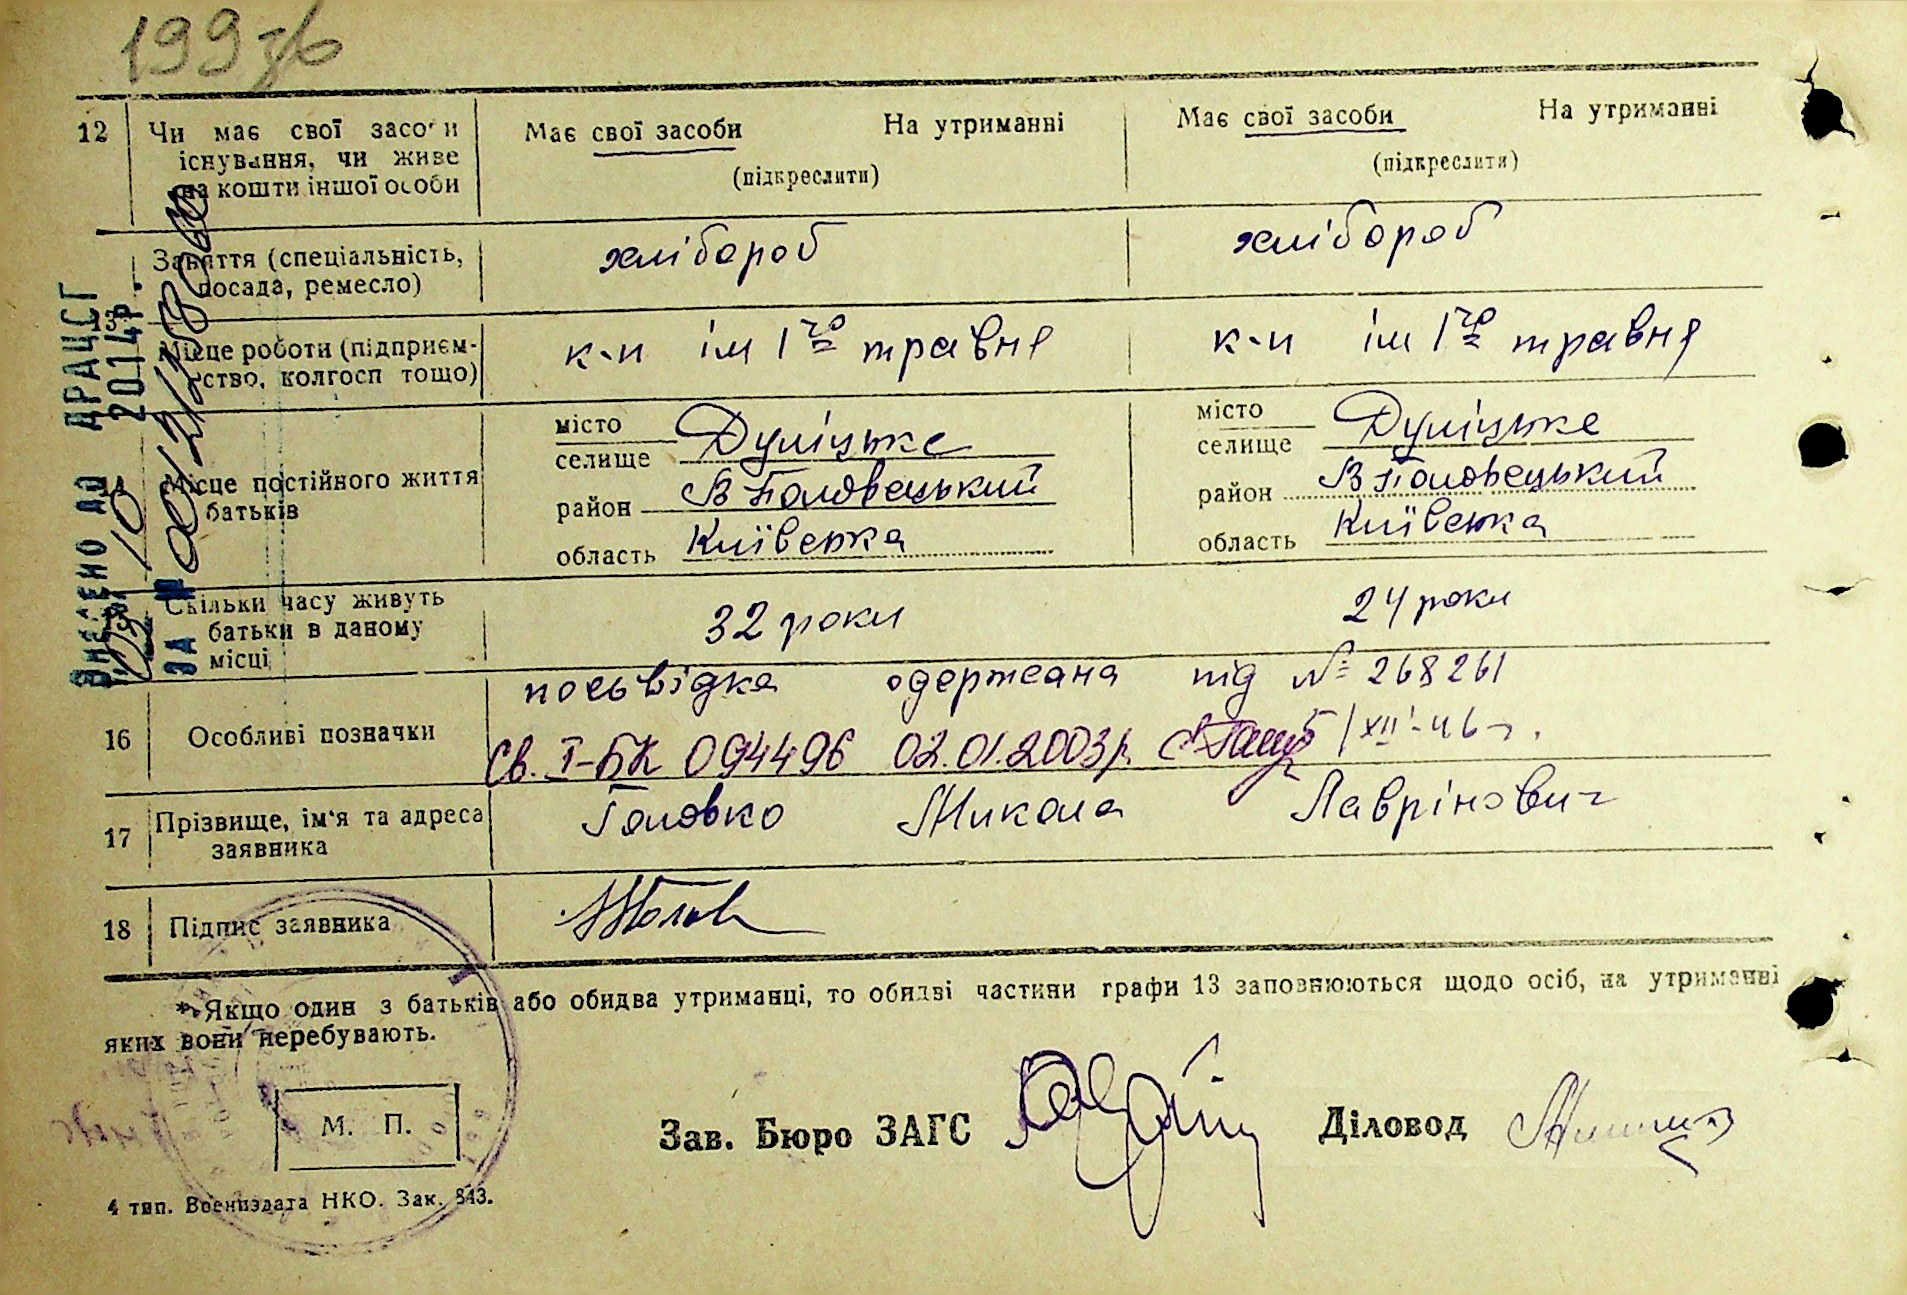 199 зв
12 Чи має свої засоби Має свої засоби На утриманні Має свої засоби На утриманні
існування, чи живе
на кошти іншої особи (підкреслити) (підкреслити)
Заняття (спеціальність, хлібороб хлібороб
посада, ремесло)
13
Місце роботи (підприєм- к-п ім 1го травня к-п ім 1го травня
ство, колгосп тощо)
Місце постійного життя місто Дуліцьке місто Дуліцьке
батьків селище селище
район В Половецький район В Половецький
область Київська область Київська
Скільки часу живуть 32 роки 24 роки
батьки в даному
місці
16 Особливі позначки посьвідка одержана під № 268261
Св. I-БК 094496 02.01.2003р. 1/XII-46 г.
17 Прізвище, ім'я та адреса Головко Микола Лаврінович
заявника
18 Підпис заявника
* Якщо один з батьків або обидва утриманці, то обидві частини графи 13 заповнюються щодо осіб, на утриманні
яких вони перебувають.
М. П.
Зав. Бюро ЗАГС Діловод
4 тип. Воениздата НКО. Зак. 843.
Внесено до ДРАЦСГ
10 2014р.
ЗА №